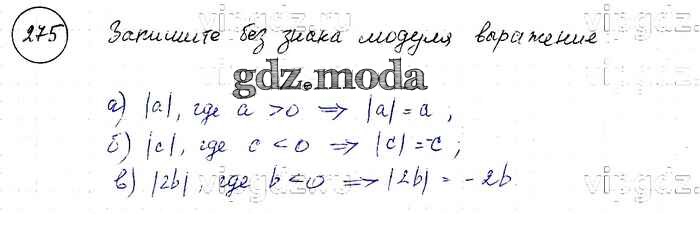 275 Запишите без знака модуля выражение
gdz.moda
а) |a|, где a > 0 ⇒ |a| = a ;
б) |c|, где c < 0 ⇒ |c| = -c ;
в) |2b|, где b < 0 ⇒ |2b| = -2b
vipgdz.ru
vipgdz.ru
vipgdz.ru